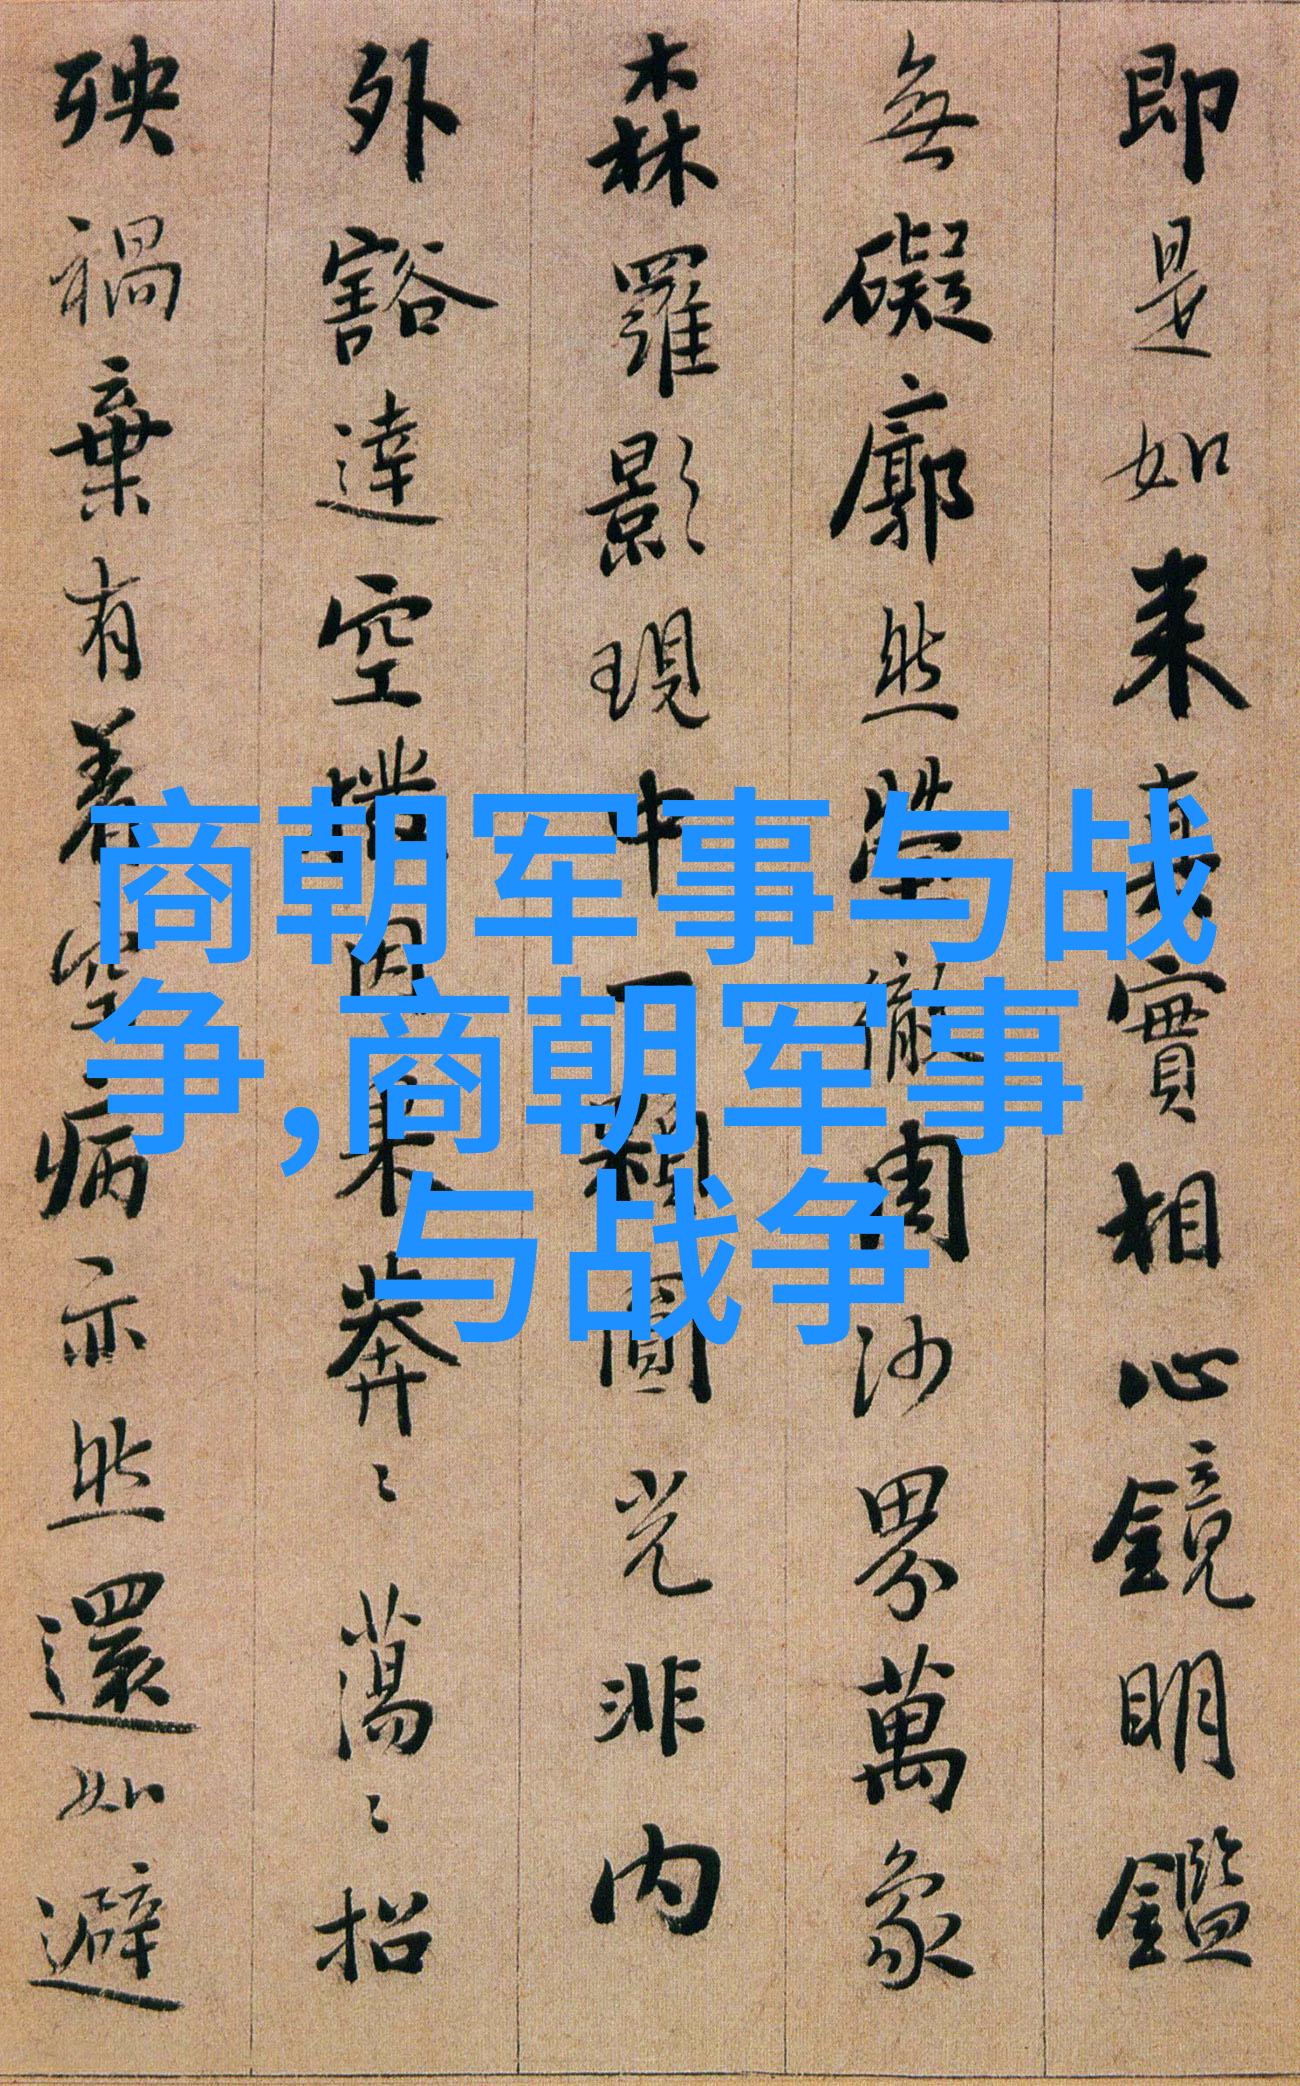 即是如来真實相心鏡明鑑
無礙廓然瑩徹周沙界萬象
森羅影現中一顆圓光非內
外豁達空因果莽〻蕩〻招
殃禍棄有着空病亦然還如避
商朝军事与战
争,商朝军事
与战争